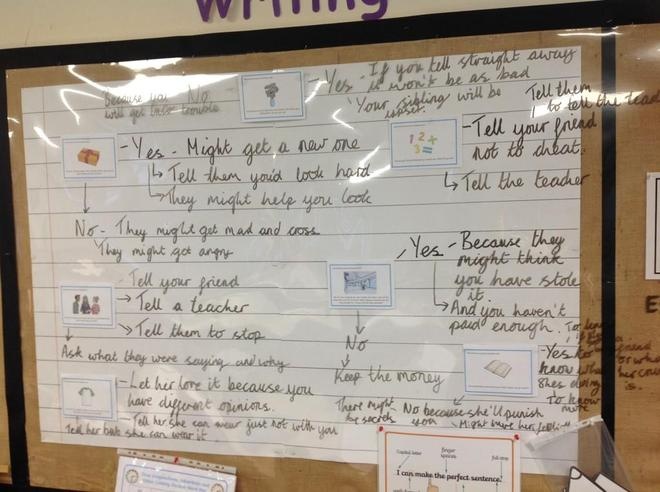 writing
Because you No
will get into trouble
Yes - If you tell straight away
it won't be as bad
Your sibling will be
upset.
Tell them
to tell the teacher
Yes - Might get a new one
Tell them you'd look hard
They might help you look
No - They might get mad and cross
They might get angry
1 2 + 3 =
Tell your friend
not to cheat.
Tell the teacher
Tell your friend
Tell a teacher
Tell them to stop
Ask what they were saying and why
Yes - Because they
might think
you have stole
it.
And you haven't
paid enough.
No
Keep the money
Yes to
know what
shes doing
To know
more
There might
be secrets
No because she'll punish
you
Might hurt her feelings
Let her love it because you
have different opinions.
Tell her she can wear just not with you
Tell her but she can wear it
Capital letter
finger spaces
full stop
I can make the perfect sentence.